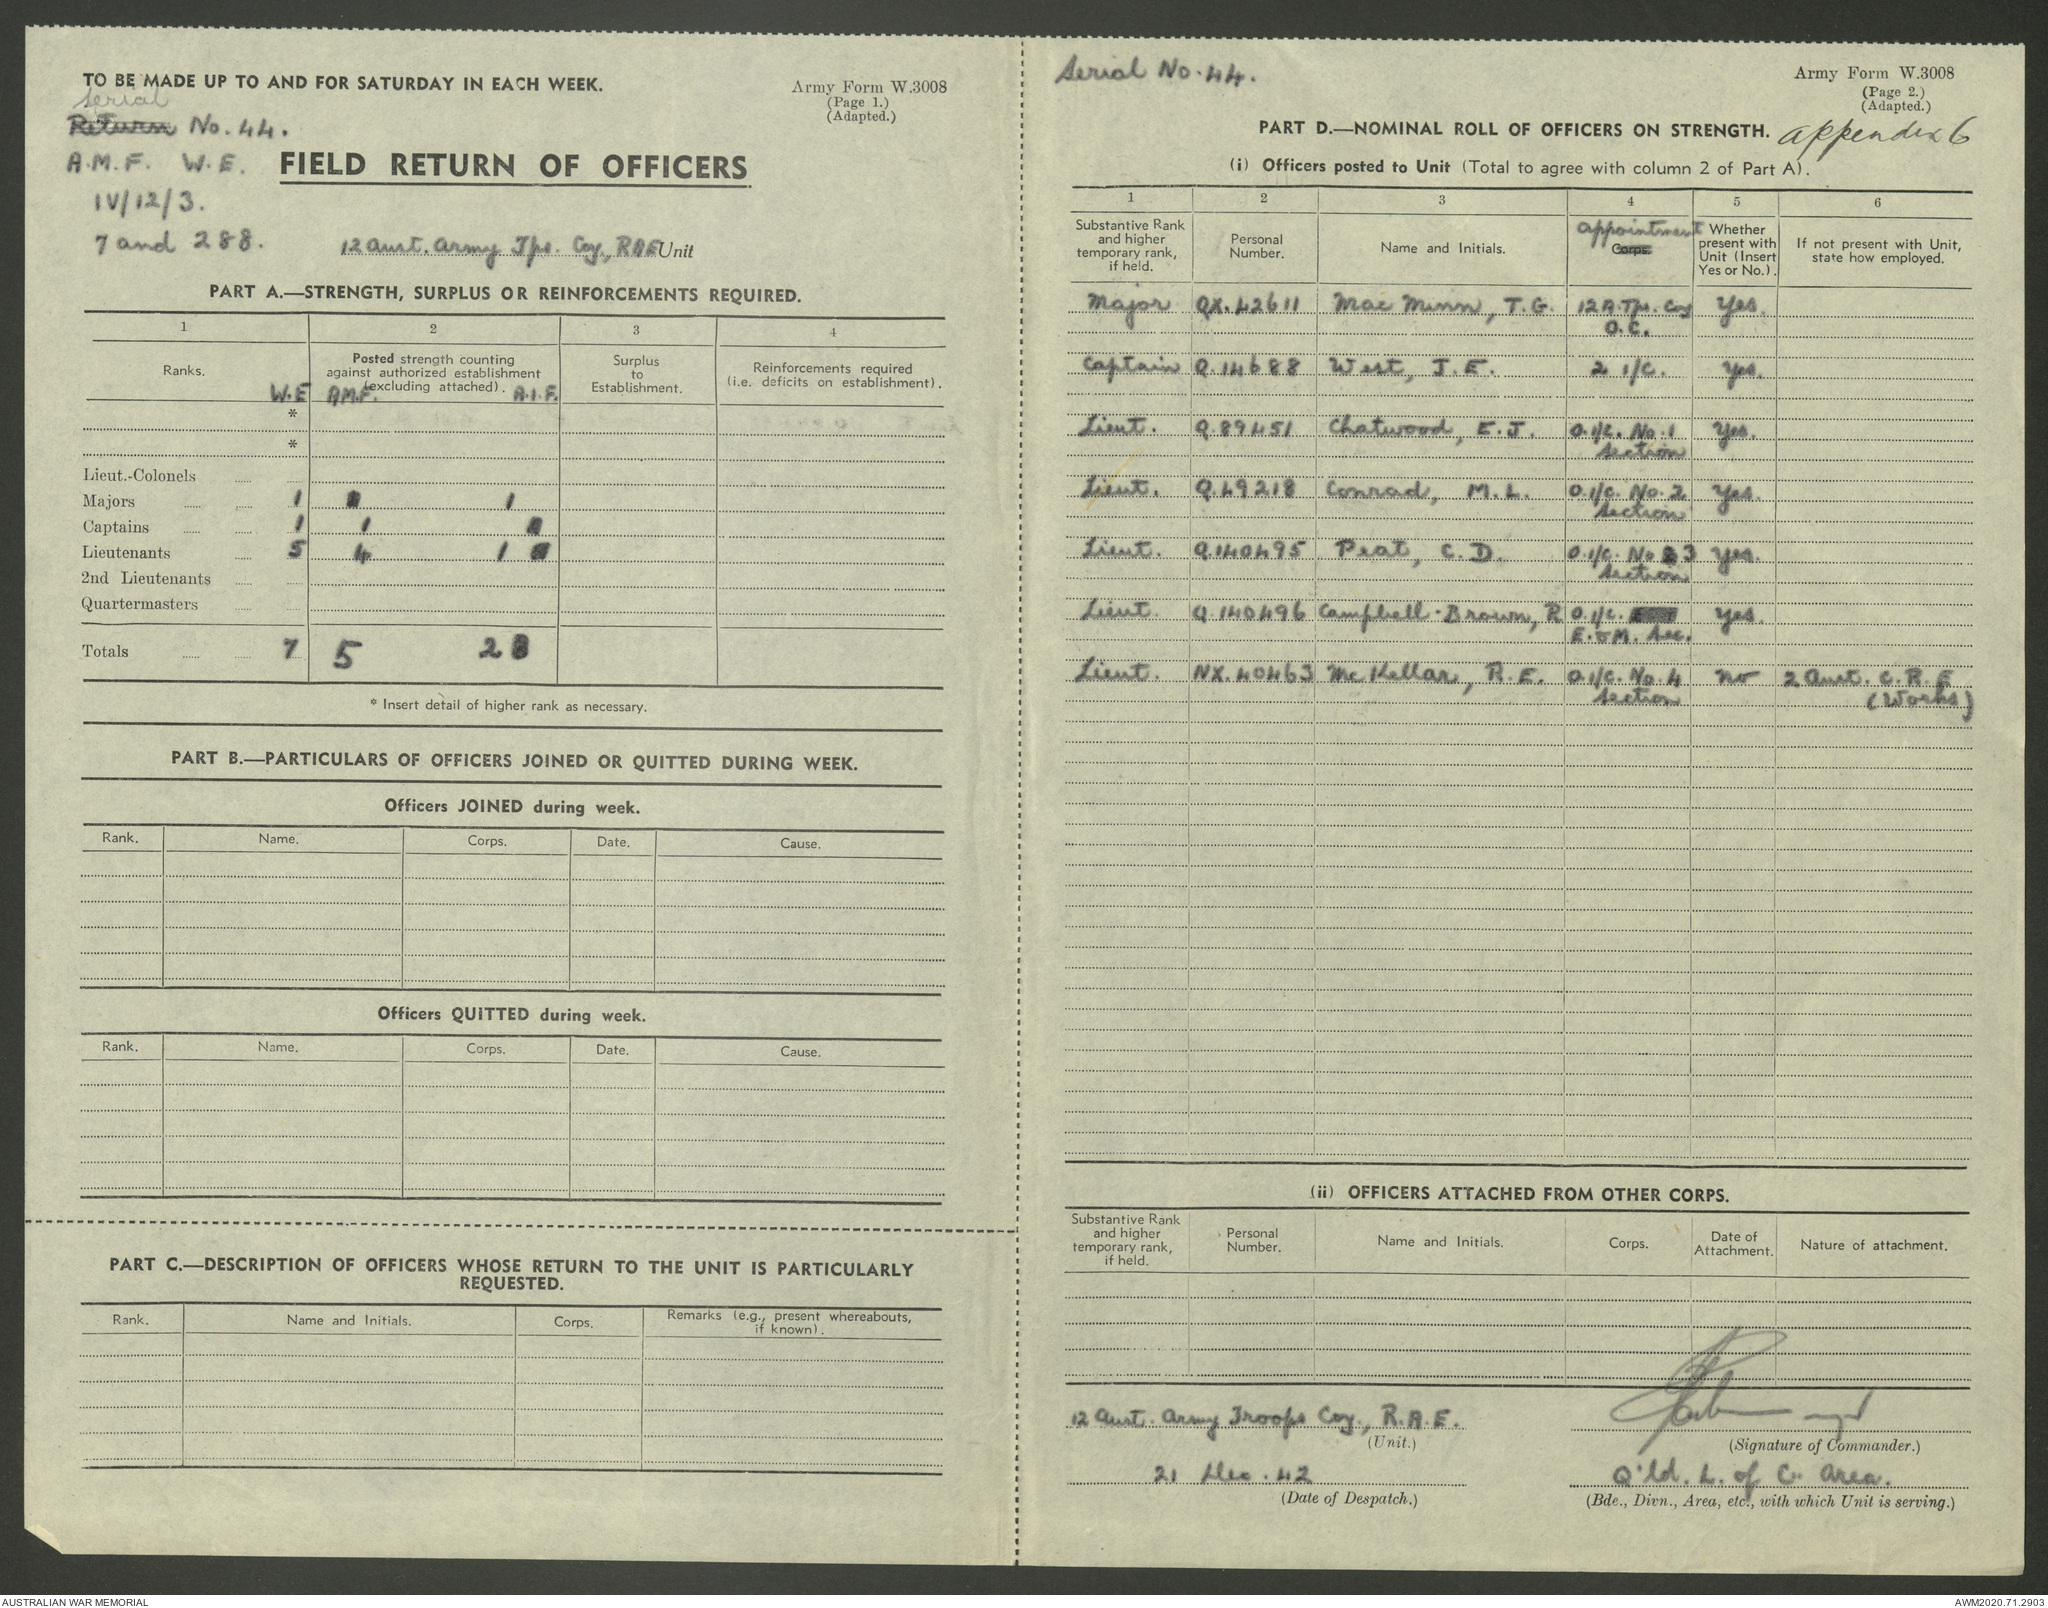 TO BE MADE UP TO AND FOR SATURDAY IN EACH WEEK.
Army Form W.3008
(Page 1.)
(Adapted.)
Serial
Return No. 44.
A.M.F. W.E.
FIELD RETURN OF OFFICERS
IV/12/3.
7 and 288.
12 Aust. Army Tps. Coy., RAE Unit
PART A.—STRENGTH, SURPLUS OR REINFORCEMENTS REQUIRED.
1 2 3 4
Ranks. W.E
Posted strength counting
against authorized establishment
(excluding attached).
A.M.F. A.I.F.
Surplus
to
Establishment.
Reinforcements required
(i.e. deficits on establishment).
*
*
Lieut.-Colonels
Majors 1 1
Captains 1 1
Lieutenants 5 4 1
2nd Lieutenants
Quartermasters
Totals 7 5 2
* Insert detail of higher rank as necessary.
PART B.—PARTICULARS OF OFFICERS JOINED OR QUITTED DURING WEEK.
Officers JOINED during week.
Rank. Name. Corps. Date. Cause.
Officers QUITTED during week.
Rank. Name. Corps. Date. Cause.
PART C.—DESCRIPTION OF OFFICERS WHOSE RETURN TO THE UNIT IS PARTICULARLY
REQUESTED.
Rank. Name and Initials. Corps. Remarks (e.g., present whereabouts,
if known).
Serial No. 44.
Army Form W.3008
(Page 2.)
(Adapted.)
PART D.—NOMINAL ROLL OF OFFICERS ON STRENGTH. appendix 6
(i) Officers posted to Unit (Total to agree with column 2 of Part A).
1 2 3 4 5 6
Substantive Rank
and higher
temporary rank,
if held.
Personal
Number.
Name and Initials.
appointment
Corps.
Whether
present with
Unit (Insert
Yes or No.).
If not present with Unit,
state how employed.
Major QX.42611 Mac Minn, T.G. 12 A.Tps. Coy Yes.
O.C.
Captain Q.14688 West, J.E. 2 i/c. Yes.
Lieut. Q.89451 Chatwood, E.J. O.i/c. No.1 Yes.
Section
Lieut. Q.49218 Conrad, M.L. O.i/c. No.2 Yes.
Section
Lieut. Q.140495 Peat, C.D. O.i/c. No 3 Yes.
Section
Lieut. Q.140496 Campbell-Brown, R O.i/c. Yes.
E.&M. Sec.
Lieut. NX.40463 McKellar, R.E. O.i/c. No.4 No 2 Aust. C.R.E
Section (Works)
(ii) OFFICERS ATTACHED FROM OTHER CORPS.
Substantive Rank
and higher
temporary rank,
if held.
Personal
Number.
Name and Initials.
Corps.
Date of
Attachment.
Nature of attachment.
12 Aust. Army Troops Coy., R.A.E.
(Unit.)
(Signature of Commander.)
21 Dec. 42
(Date of Despatch.)
Q'ld. L. of C. Area.
(Bde., Divn., Area, etc., with which Unit is serving.)
AUSTRALIAN WAR MEMORIAL
AWM2020.71.2903